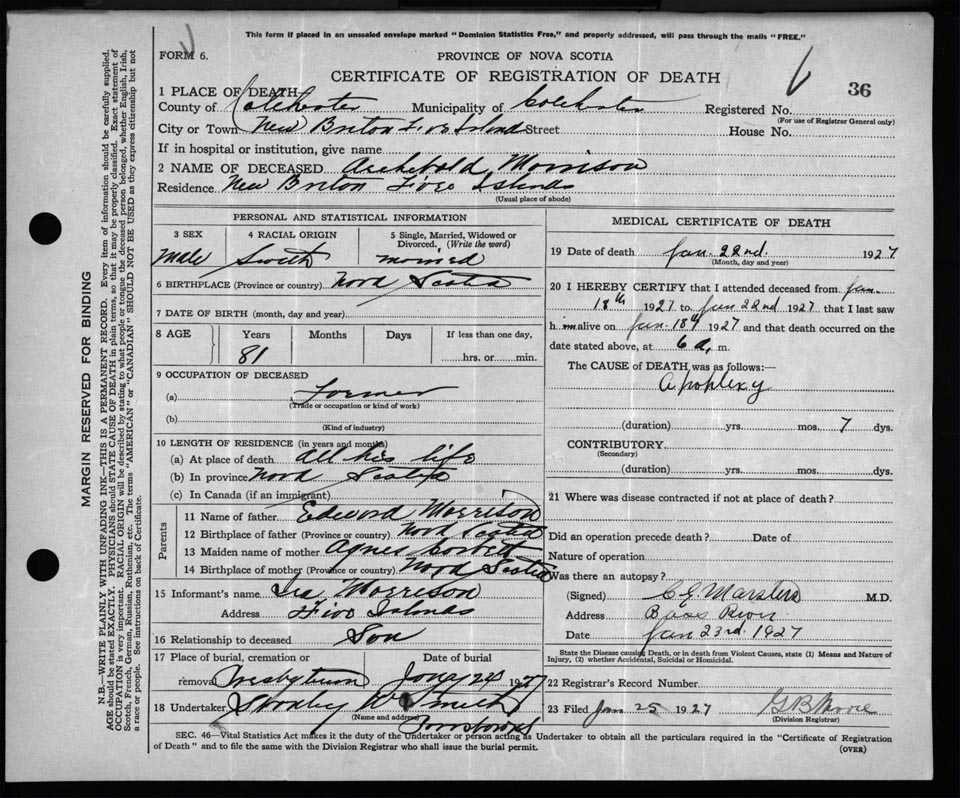 This form if placed in an unsealed envelope marked "Dominion Statistics Free," and properly addressed, will pass through the mails "FREE."
FORM 6.
PROVINCE OF NOVA SCOTIA
CERTIFICATE OF REGISTRATION OF DEATH
36
1 PLACE OF DEATH
County of Colchester Municipality of Colchester Registered No.
(For use of Registrar General only)
City or Town New Briton Five Islands Street House No.
If in hospital or institution, give name
2 NAME OF DECEASED Archibald Morrison
Residence New Briton Five Islands
(Usual place of abode)
PERSONAL AND STATISTICAL INFORMATION
3 SEX 4 RACIAL ORIGIN 5 Single, Married, Widowed or Divorced. (Write the word)
Male Scotch married
6 BIRTHPLACE (Province or country) Nova Scotia
7 DATE OF BIRTH (month, day and year)
8 AGE Years Months Days If less than one day,
81 hrs. or min.
9 OCCUPATION OF DECEASED
(a) Farmer
(Trade or occupation or kind of work)
(b)
(Kind of industry)
10 LENGTH OF RESIDENCE (in years and months)
(a) At place of death All his life
(b) In province Nova Scotia
(c) In Canada (if an immigrant)
Parents
11 Name of father Edward Morrison
12 Birthplace of father (Province or country) Nova Scotia
13 Maiden name of mother Agnes Corbett
14 Birthplace of mother (Province or country) Nova Scotia
15 Informant's name Ira Morrison
Address Five Islands
16 Relationship to deceased Son
17 Place of burial, cremation or Date of burial
removal Presbyterian Jany 24 1927
18 Undertaker Stanley Smith
(Name and address)
MEDICAL CERTIFICATE OF DEATH
19 Date of death Jan. 22nd. 1927
(Month, day and year)
20 I HEREBY CERTIFY that I attended deceased from Jan.
18th 1927 to Jan 22nd 1927 that I last saw
h im alive on Jan. 18th 1927 and that death occurred on the
date stated above, at 6 a, m.
The CAUSE of DEATH was as follows:—
Apoplexy
(duration) yrs. mos. 7 dys.
CONTRIBUTORY
(Secondary)
(duration) yrs. mos. dys.
21 Where was disease contracted if not at place of death?
Did an operation precede death? Date of
Nature of operation
Was there an autopsy?
(Signed) C G Marsters M.D.
Address Bass River
Date Jan 23rd. 1927
State the Disease causing Death, or in death from Violent Causes, state (1) Means and Nature of
Injury, (2) whether Accidental, Suicidal or Homicidal.
22 Registrar's Record Number
23 Filed Jan 25 1927
(Division Registrar)
SEC. 46—Vital Statistics Act makes it the duty of the Undertaker or person acting as Undertaker to obtain all the particulars required in the "Certificate of Registration
of Death" and to file the same with the Division Registrar who shall issue the burial permit.
(OVER)
MARGIN RESERVED FOR BINDING
N.B.—WRITE PLAINLY WITH UNFADING INK—THIS IS A PERMANENT RECORD. Every item of information should be carefully supplied.
AGE should be stated EXACTLY. PHYSICIANS should STATE CAUSE OF DEATH in plain terms, so that it may be properly classified. Exact statement of
OCCUPATION is very important. RACIAL ORIGIN will be described by stating to what people or tongue the deceased person belonged, whether English, Irish,
Scotch, French, German, Russian, Ruthenian, etc. The terms "AMERICAN" or "CANADIAN" SHOULD NOT BE USED as they express citizenship but not
a race or people. See instructions on back of Certificate.